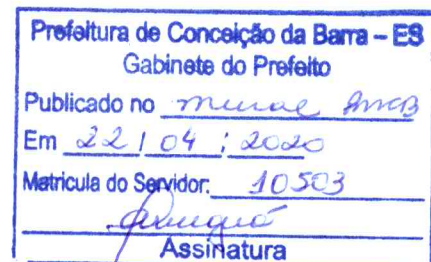 Prefeitura de Conceição da Barra – ES
Gabinete do Prefeito
Publicado no mural PMCB
Em 22 / 04 / 2020
Matricula do Servidor: 10503
Assinatura